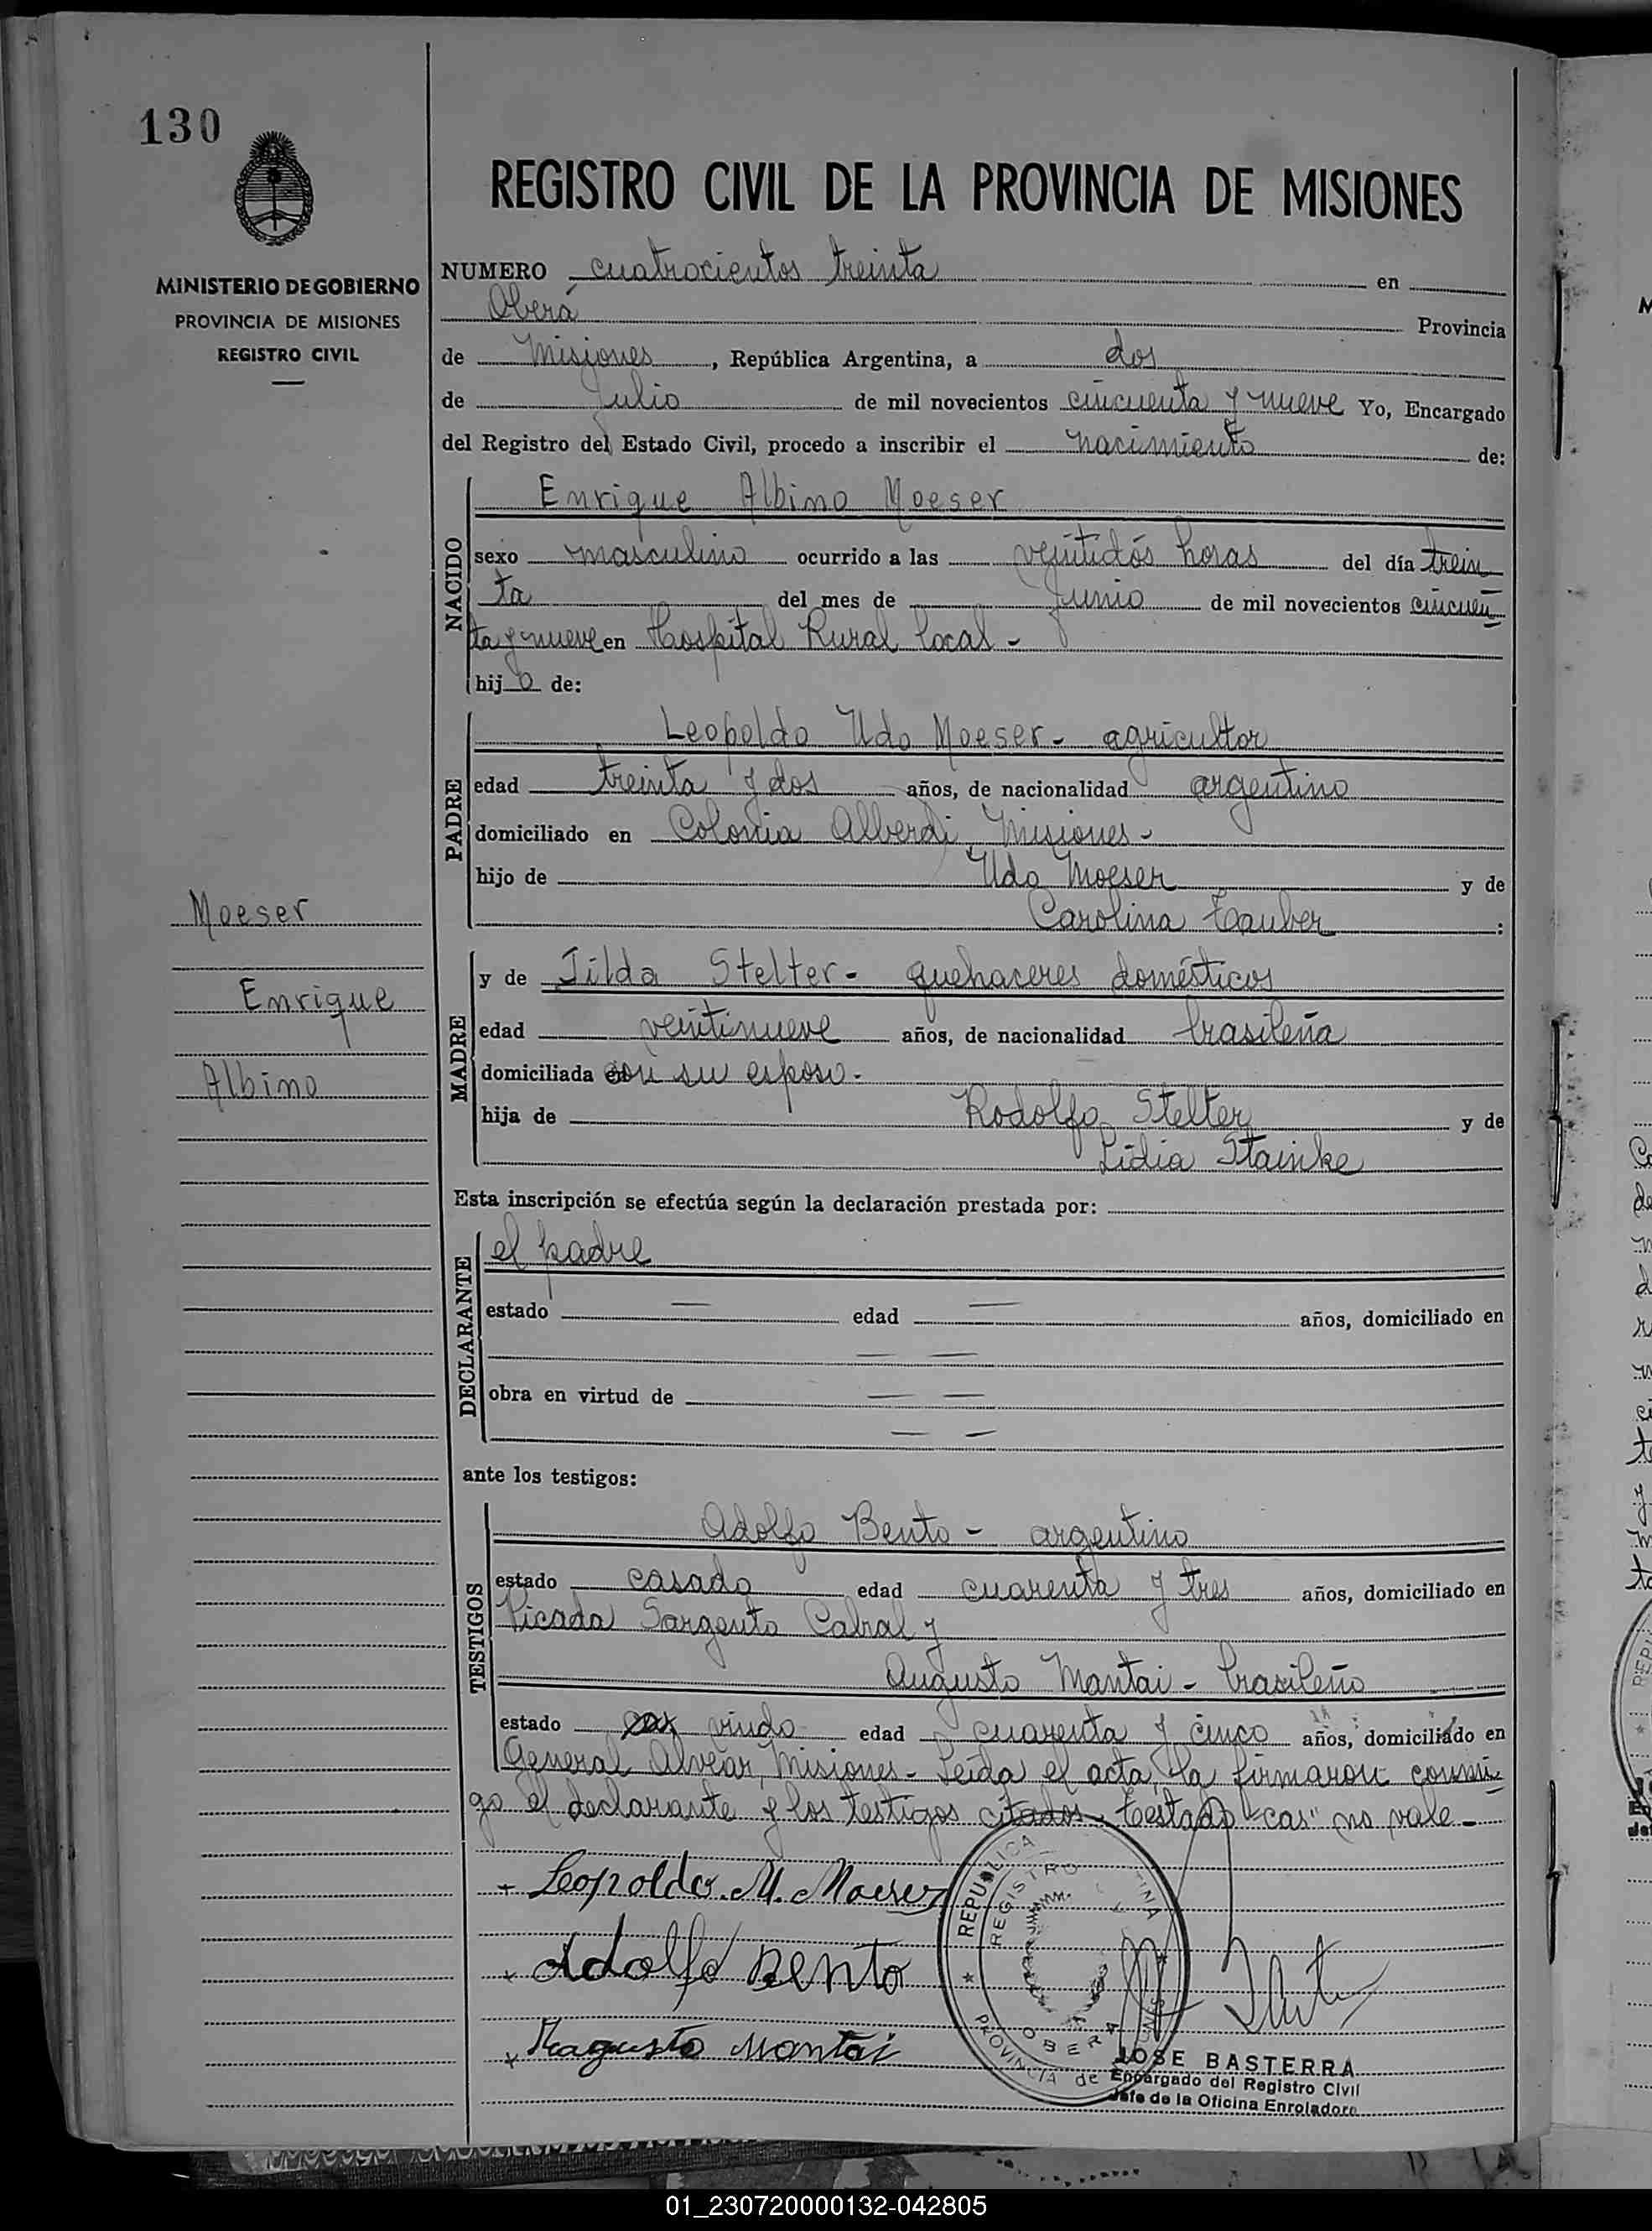 130
MINISTERIO DE GOBIERNO
PROVINCIA DE MISIONES
REGISTRO CIVIL
REGISTRO CIVIL DE LA PROVINCIA DE MISIONES
NUMERO cuatrocientos treinta en
Oberá Provincia
de Misiones, República Argentina, a dos
de Julio de mil novecientos cincuenta y nueve Yo, Encargado
del Registro del Estado Civil, procedo a inscribir el nacimiento de:
NACIDO
Enrique Albino Moeser
sexo masculino ocurrido a las veintidós horas del día trein
ta del mes de Junio de mil novecientos cincuen
ta y nueve en Hospital Rural local -
hijo de:
PADRE
Leopoldo Udo Moeser - agricultor
edad treinta y dos años, de nacionalidad argentino
domiciliado en Colonia Alberdi, Misiones -
hijo de Udo Moeser y de
Carolina Tauber :
MADRE
y de Tilda Stelter - quehaceres domésticos
edad veintinueve años, de nacionalidad brasileña
domiciliada con su esposo -
hija de Rodolfo Stelter y de
Lidia Stainke
Moeser
Enrique
Albino
Esta inscripción se efectúa según la declaración prestada por:
DECLARANTE
el padre
estado — edad — años, domiciliado en
— —
obra en virtud de — —
— —
ante los testigos:
TESTIGOS
Adolfo Bento - argentino
estado casado edad cuarenta y tres años, domiciliado en
Picada Sargento Cabral y
Augusto Mantai - brasileño
estado cas viudo edad cuarenta y cinco años, domiciliado en
General Alvear, Misiones - Leída el acta, la firmaron conmi
go el declarante y los testigos citados - Testado "cas" no vale -
Leopoldo. U. Moeser
Adolfo Bento
Augusto Mantai
REPUBLICA
REGISTRO
OBERA
PROVINCIA de
JOSE BASTERRA
Encargado del Registro Civil
Jefe de la Oficina Enroladora
01_230720000132-042805